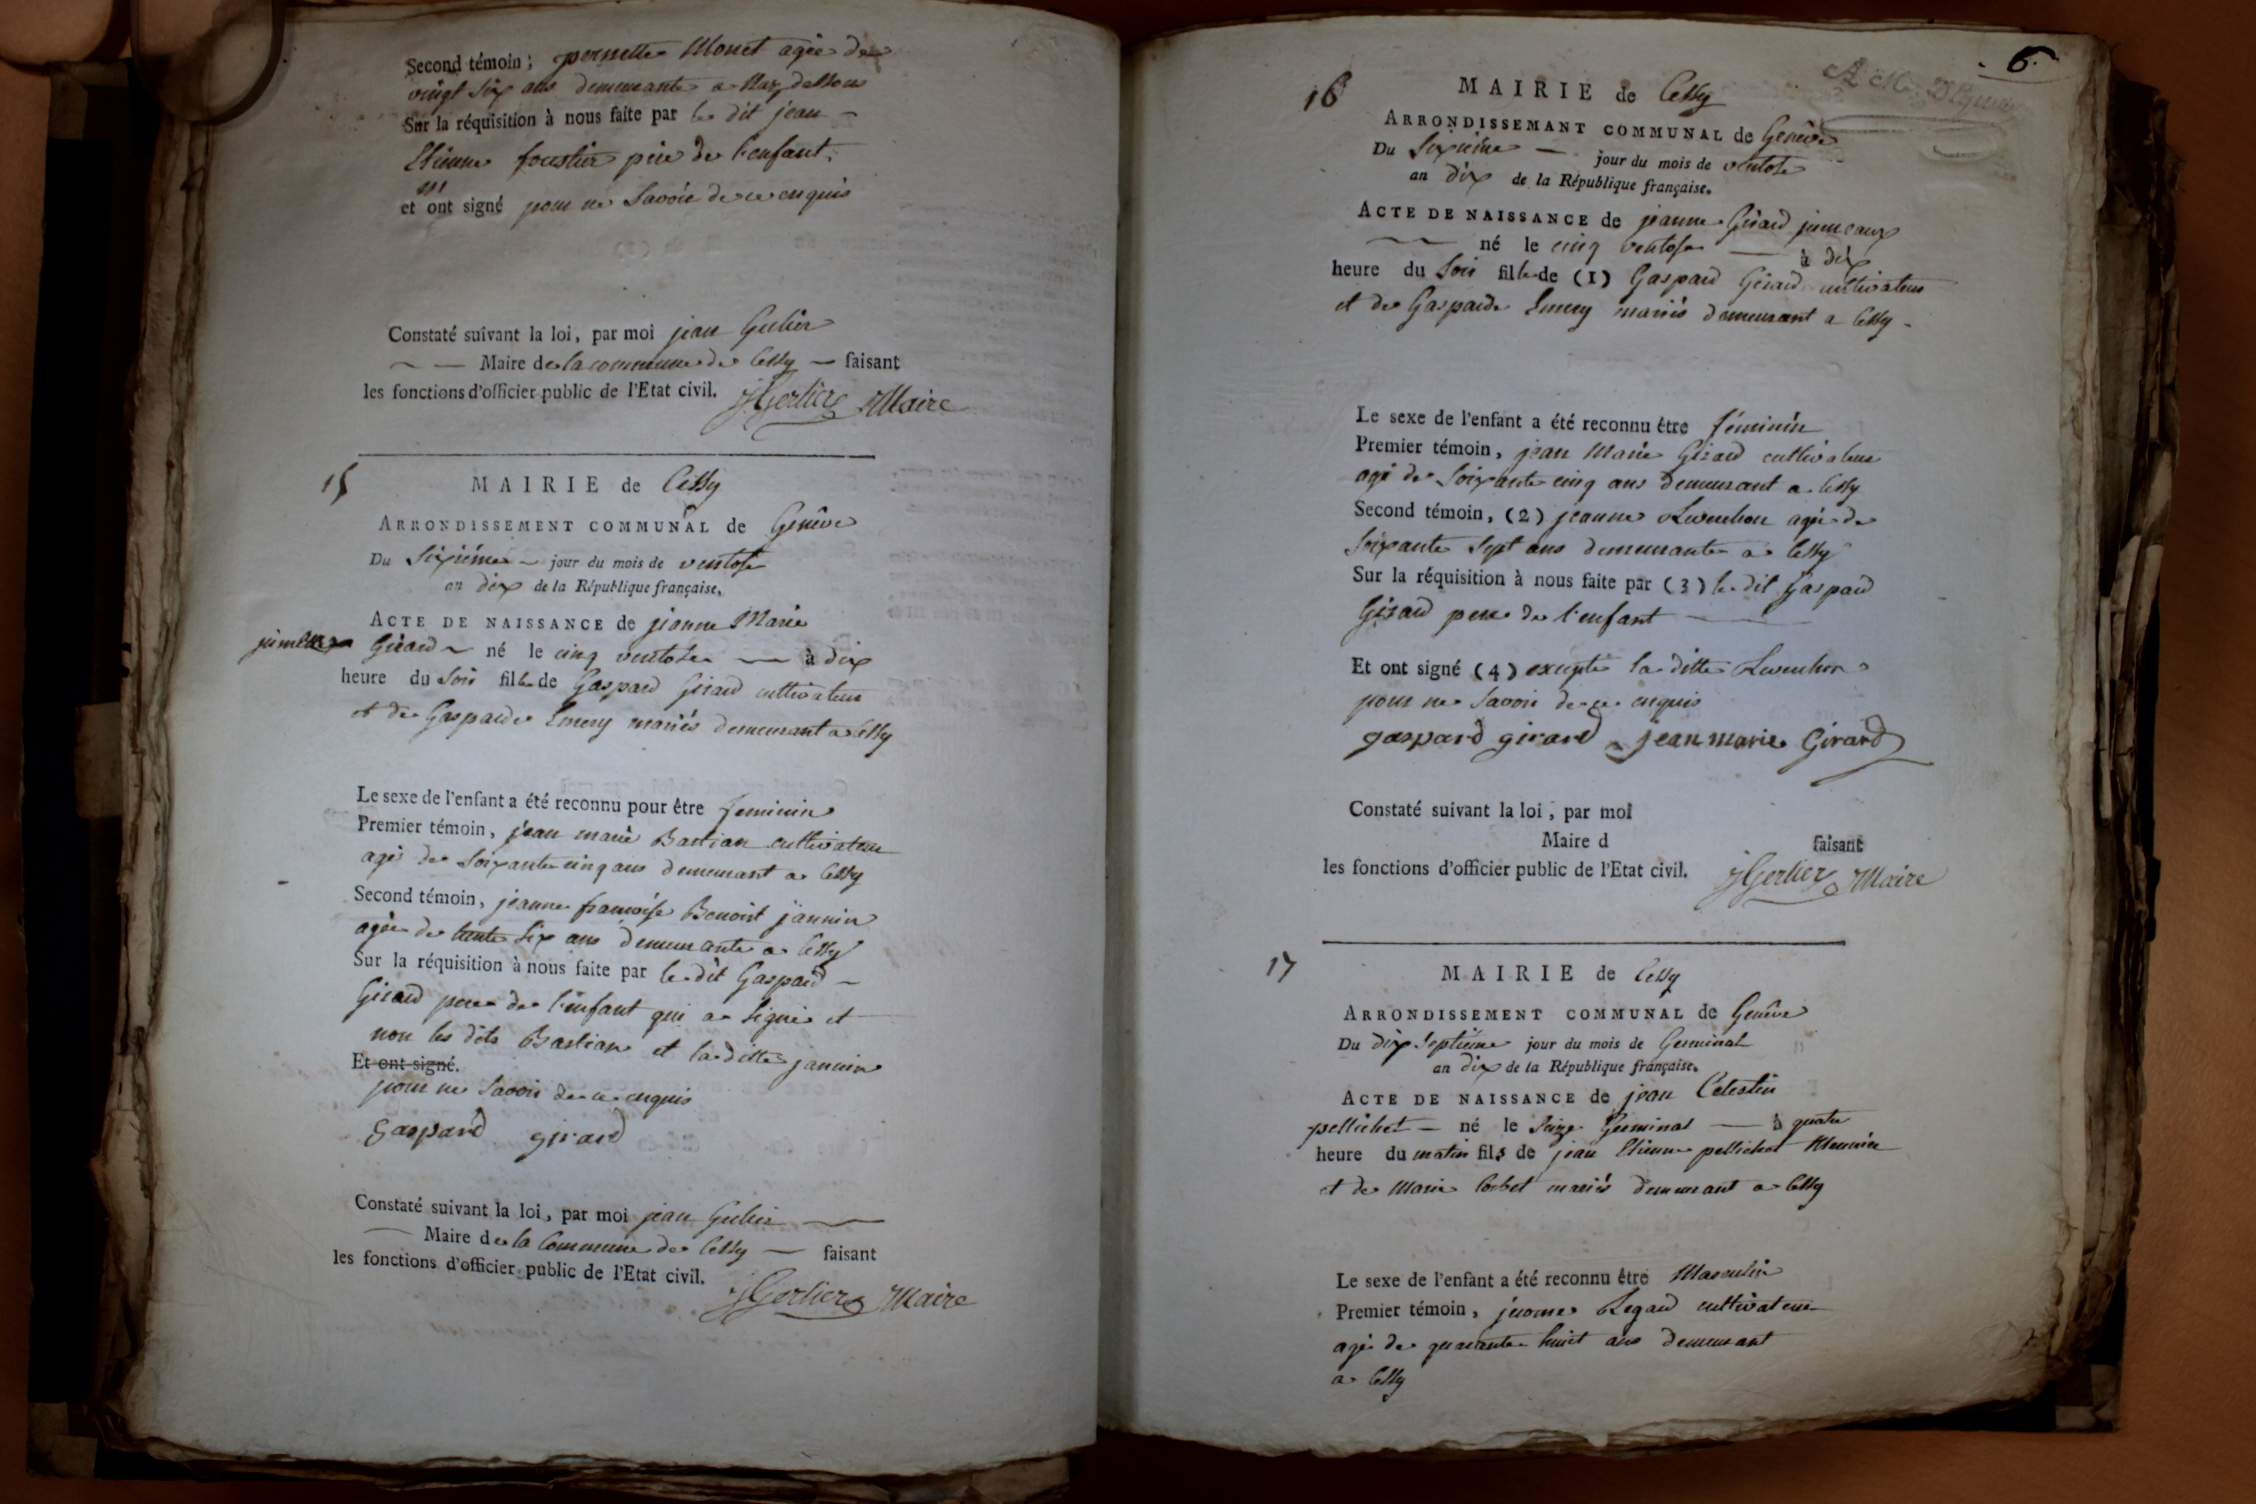 Second témoin ; pernette Monet agée de
vingt six ans demeurante a Naz dessou
Sur la réquisition à nous faite par le dit jean –
Etienne foustier père de l'enfant,
n'i
et ont signé pour ne Savoir de ce enquis
Constaté suivant la loi, par moi jean Gerlier
Maire de la commune de Cessy – faisant
les fonctions d'officier public de l'Etat civil. J Gerlier Maire
15
MAIRIE de Cessy
ARRONDISSEMENT COMMUNAL de Genêve
Du Sixième – jour du mois de ventose
an dix de la République française.
ACTE DE NAISSANCE de jeanne Marie
jumeaux Girard – né le cinq ventose — à dix
heure du Soir fille de Gaspard Girard cultivateur
et de Gasparde Emery mariés demeurant a Cessy
Le sexe de l'enfant a été reconnu pour être feminin
Premier témoin, jean marie Bastian cultivateur
agé de Soixante cinq ans demeurant a Cessy
Second témoin, jeanne francoise Benoist jannin
agée de trente Six ans demeurante a Cessy
Sur la réquisition à nous faite par le dit Gaspard –
Girard pere de l'enfant qui a Signé et
non les dits Bastian et la ditte jannin
Et ont signé.
pour ne Savoir de ce enquis
gaspard girard
Constaté suivant la loi, par moi jean Gerlier —
— Maire de la Commune de Cessy — faisant
les fonctions d'officier public de l'Etat civil.
J Gerlier Maire
6.
16
MAIRIE de Cessy
ARRONDISSEMANT COMMUNAL de Genêve
Du Sixième — jour du mois de ventose
an dix de la République française.
ACTE DE NAISSANCE de jeanne Girard jumeaux
né le cinq ventose — à dix
heure du Soir fille de (1) Gaspard Girard cultivateur
et de Gasparde Emery mariés demeurant a Cessy –
Le sexe de l'enfant a été reconnu être féminin
Premier témoin, jean Marie Girard cultivateur
agé de Soixante cinq ans demeurant a Cessy
Second témoin, (2) jeanne agée de
Soixante Sept ans demeurante a Cessy
Sur la réquisition à nous faite par (3) le dit Gaspard
Girard pere de l'enfant —
Et ont signé (4) excepté la ditte
pour ne Savoir de ce enquis
gaspard girard jean marie Girard
Constaté suivant la loi, par moi
Maire d faisant
les fonctions d'officier public de l'Etat civil. J Gerlier Maire
17
MAIRIE de Cessy
ARRONDISSEMENT COMMUNAL de Genêve
Du dix Septième jour du mois de Germinal
an dix de la République française.
ACTE DE NAISSANCE de jean Celestin
pellichet — né le Seize Germinal — à quatre
heure du matin fils de jean Etienne pellichet Meunier
et de Marie Corbet mariés demeurant a Cessy
Le sexe de l'enfant a été reconnu être Masculin
Premier témoin, jerome Regard cultivateur
agé de quarante huit ans demeurant
a Cessy